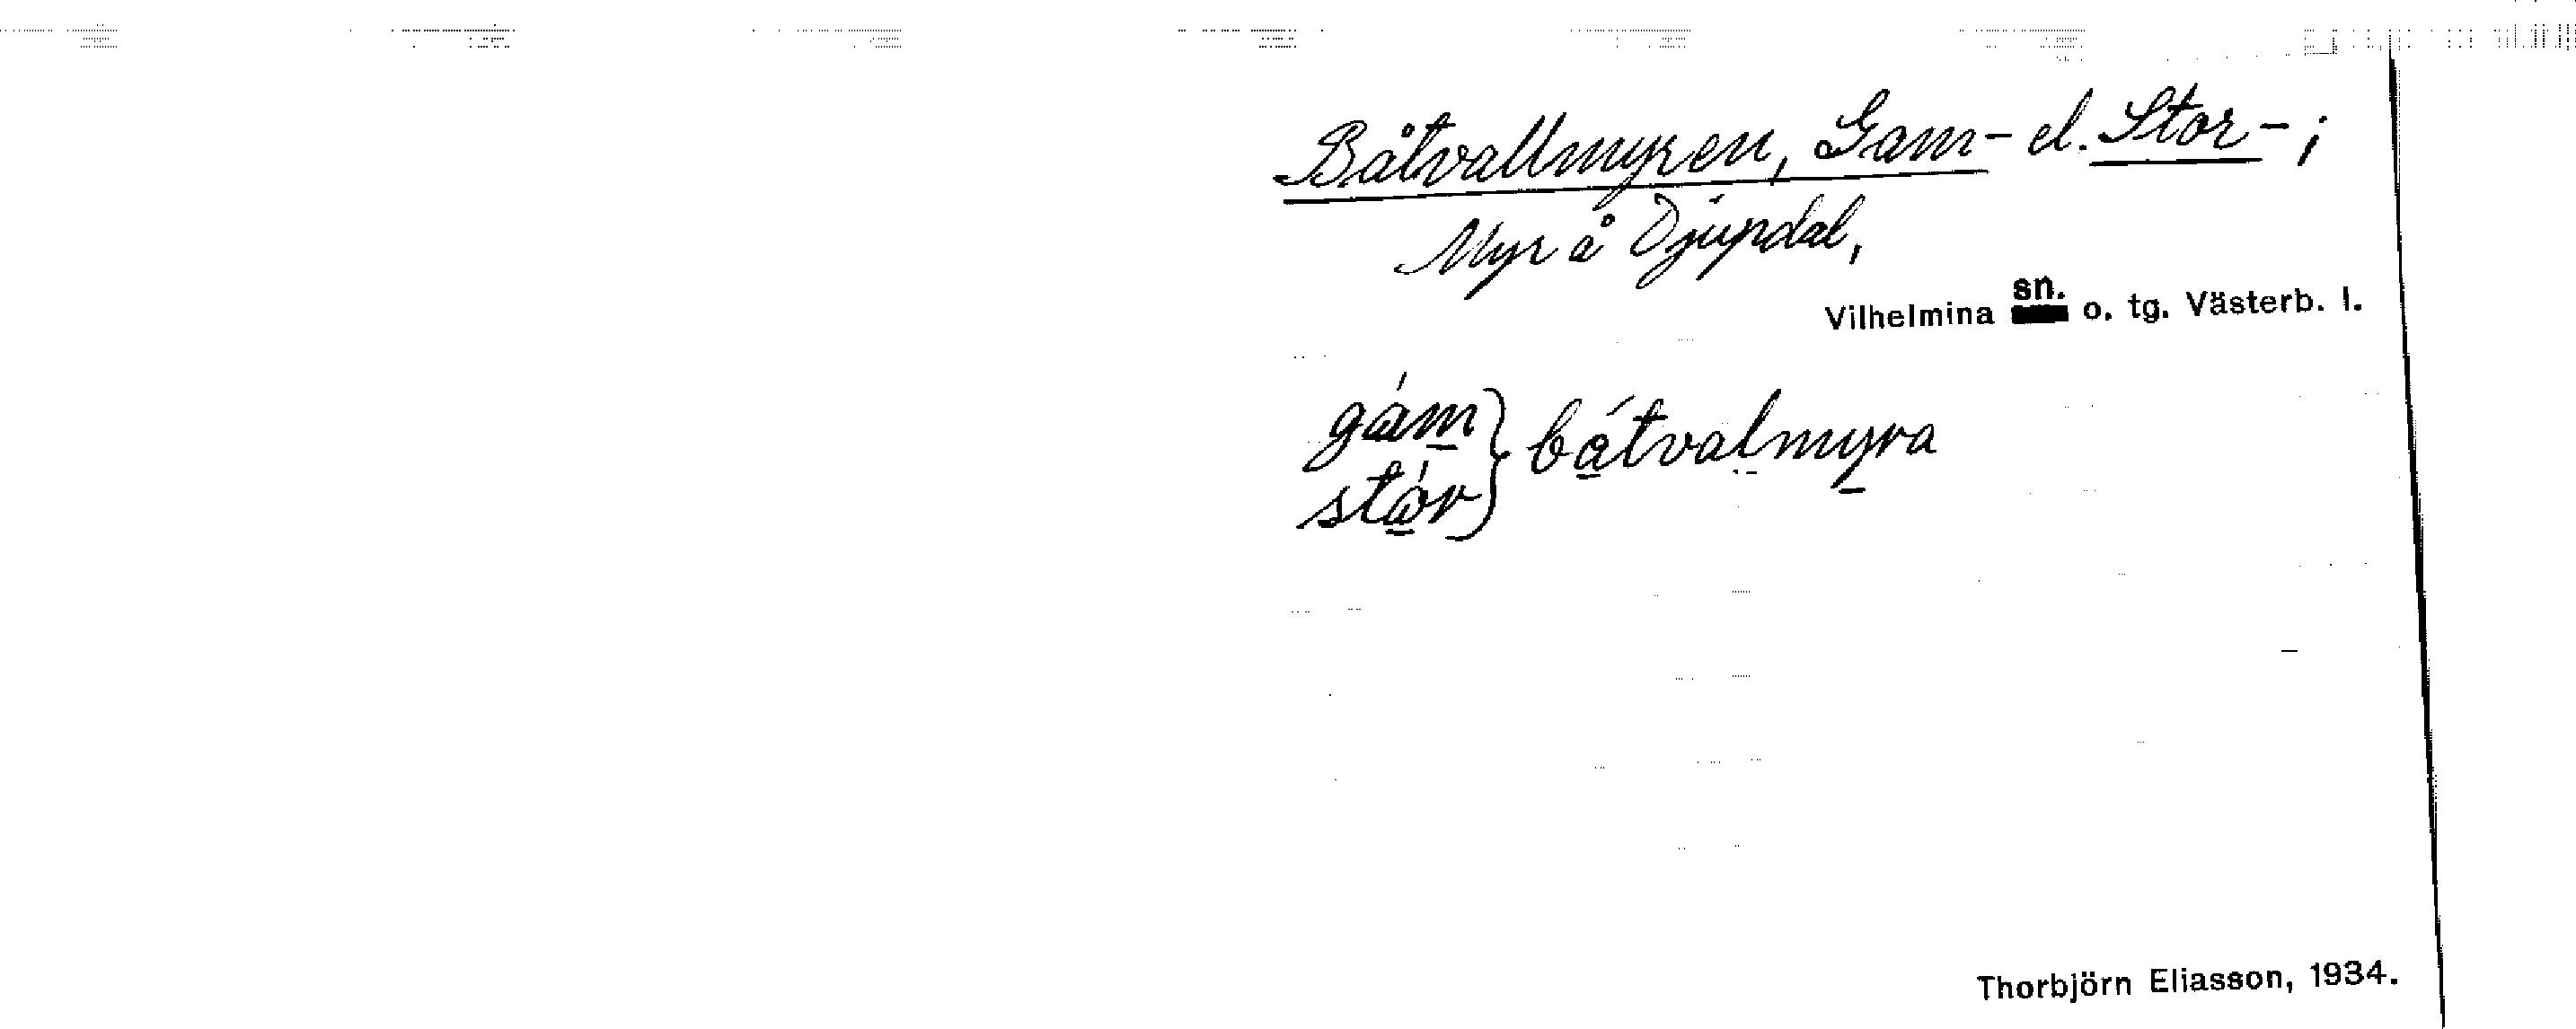 Båtvallmyren, Gam- el. Stor-;
Myr å Djupdal,
Vilhelmina sn. o. tg. Västerb. l.
gám } bátvalmyra
stór
Thorbjörn Eliasson, 1934.